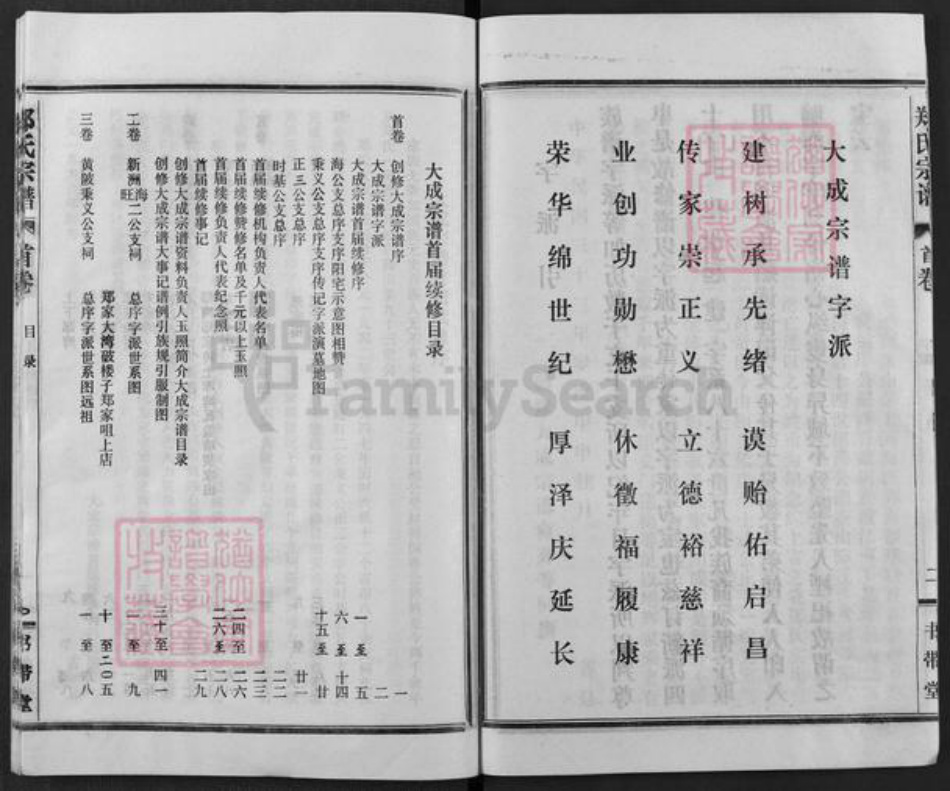 郑氏宗谱
首卷
二
书带堂
大成宗谱字派
建树承先绪 谟贻佑启昌
传家崇正义 立德裕慈祥
业创功勋懋 休徵福履康
荣华绵世纪 厚泽庆延长
大成宗谱首届续修目录
首卷 创修大成宗谱序 一
大成宗谱字派 二
大成宗谱首届续修序 一至五
海公支总序支序阳宅示意图相赞 六至十四
秉义公支总序支序传记字派演墓地图 十五至廿
正三公支总序 廿一
时基公支总序 二二
首届续修机构负责人代表名单 二三
首届续修赞修名单及千元以上玉照 二四至二六
首届续修负责人代表纪念照 二六至二八
首届续修事记 二九
创修大成宗谱资料负责人玉照简介大成宗谱目录
创修大成宗谱大事记谱例引族规引服制图 三十至四一
二卷 新洲海旺二公支祠 总序字派世系图 一至九
郑家大湾破楼子郑家咀上店 十至二0五
三卷 黄陂秉义公支祠 总序字派世系图远祖 一至六八
郑氏宗谱
首卷
目录
书带堂
FamilySearch